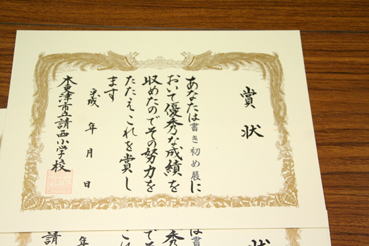 賞状
あなたは書き初め展に
おいて優秀な成績を
収めたのでその努力を
たたえこれを賞し
ます
平成 年 月 日
木更津市立請西小学校